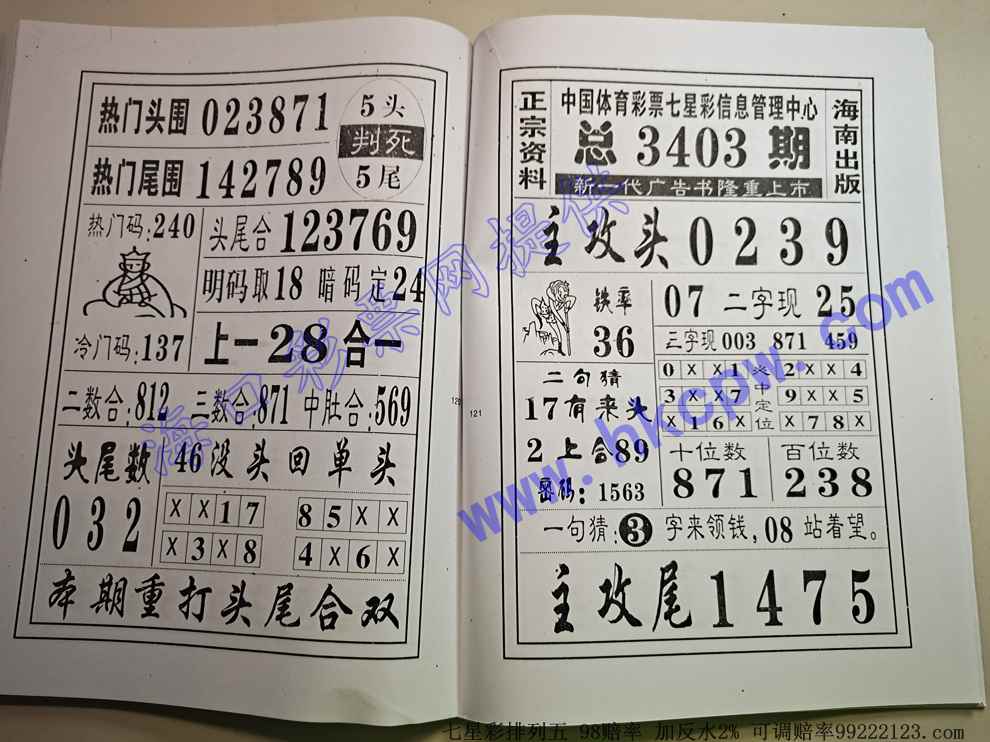 热门头围 023871
5头
判死
5尾
热门尾围 142789
热门码:240
头尾合 123769
明码取18 暗码定24
冷门码:137
上一28合一
二数合:812 三数合:871 中肚合:569
头尾数 46没头回单头
032
X X 1 7
8 5 X X
X 3 X 8
4 X 6 X
本期重打头尾合双
120
121
正宗资料
中国体育彩票七星彩信息管理中心
总3403期
新一代广告书隆重上市
海南出版
主攻头 0239
铁率
36
07 二字现 25
三字现 003 871 459
二句猜
17有来头
2上合89
密码:1563
0 X X 1
3 X X 7
X 1 6 X
必中定位
2 X X 4
9 X X 5
X 7 8 X
十位数
871
百位数
238
一句猜:3字来领钱,08站着望。
主攻尾 1475
海口彩票网提供
www.hkcpw.com
七星彩排列五 98赔率 加反水2% 可调赔率99222123.com